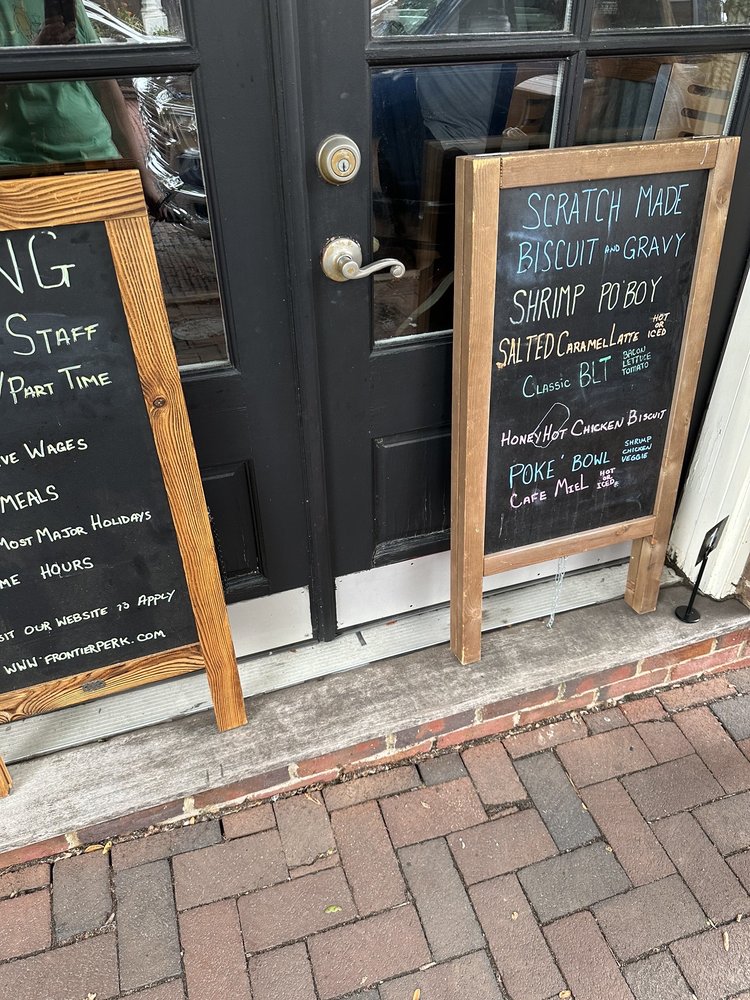 NG
STAFF
/PART TIME
VE WAGES
MEALS
MOST MAJOR HOLIDAYS
ME HOURS
SIT OUR WEBSITE TO APPLY
WWW.FRONTIERPERK.COM
SCRATCH MADE
BISCUIT AND GRAVY
SHRIMP PO'BOY
SALTED CARAMEL LATTE HOT OR ICED
CLASSIC BLT BACON LETTUCE TOMATO
HONEY HOT CHICKEN BISCUIT
POKE' BOWL SHRIMP CHICKEN VEGGIE
CAFE MIEL HOT OR ICED